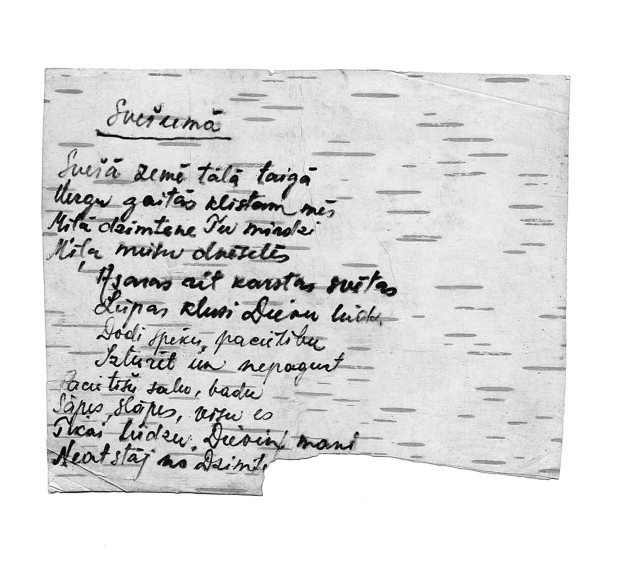 Svešumā
Svešā zemē tālā taigā
Vergu gaitās klīstam mēs
Mīļā dzimtene Tu mirdzi
Mīļa mūsu dvēselēs
Asaras rit karstas svētas
Lūpas klusi Dievu lūdz.
Dodi spēku, pacietību
Izturēt un nepagurt
Pacietīšu salu, badu
Sāpes, slāpes, visu es
Tikai lūdzu, Dieviņ mani
Neatstāj no Dzimt